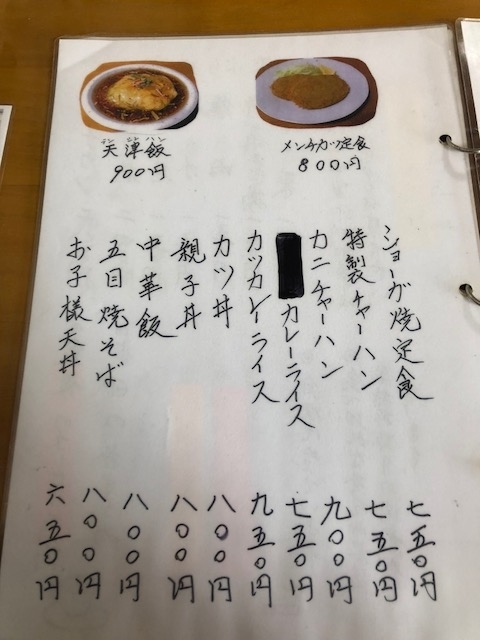 テン シン ハン
天津飯
900円
メンチカツ定食
800円
ショーガ焼定食 七五〇円
特製チャーハン 七五〇円
カニチャーハン 九〇〇円
カレーライス 七五〇円
カツカレーライス 九五〇円
カツ丼 八〇〇円
親子丼 八〇〇円
中華飯 八〇〇円
五目焼そば 八〇〇円
お子様天丼 六五〇円